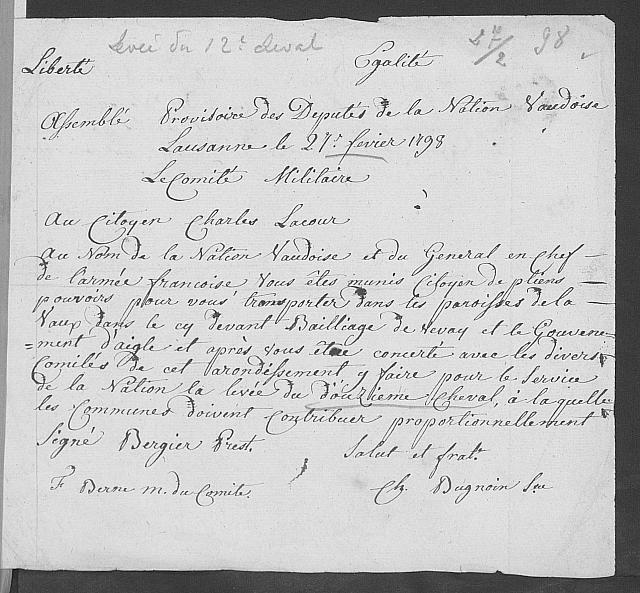 Levée du 12e. cheval 27/2 98
Liberté Egalité
Assemblé Provisoire des Deputés de la Nation Vaudoise
Lausanne le 27r. fevrier 1798
Le Comité Militaire
Au Citoyen Charles Lacour
Au Nom de la Nation Vaudoise et du General en chef
de l'armée francoise Vous êtes munis Citoyen de pleins
pouvoirs pour vous transporter dans les paroisses de la
Vaux dans le cy devant Bailliage de Vevay et le Gouvene=
=ment d'aigle et après vous être concerté avec les divers
Comités de cet arondéssement y faire pour le Service
de la Nation la levée du d'ouzieme Cheval, à la quelle
les Communes doivent contribuer proportionnellement
Signé Bergier Prest. Salut et frat.
F Berne m. du Comité. Ch. Bugnoin Sre